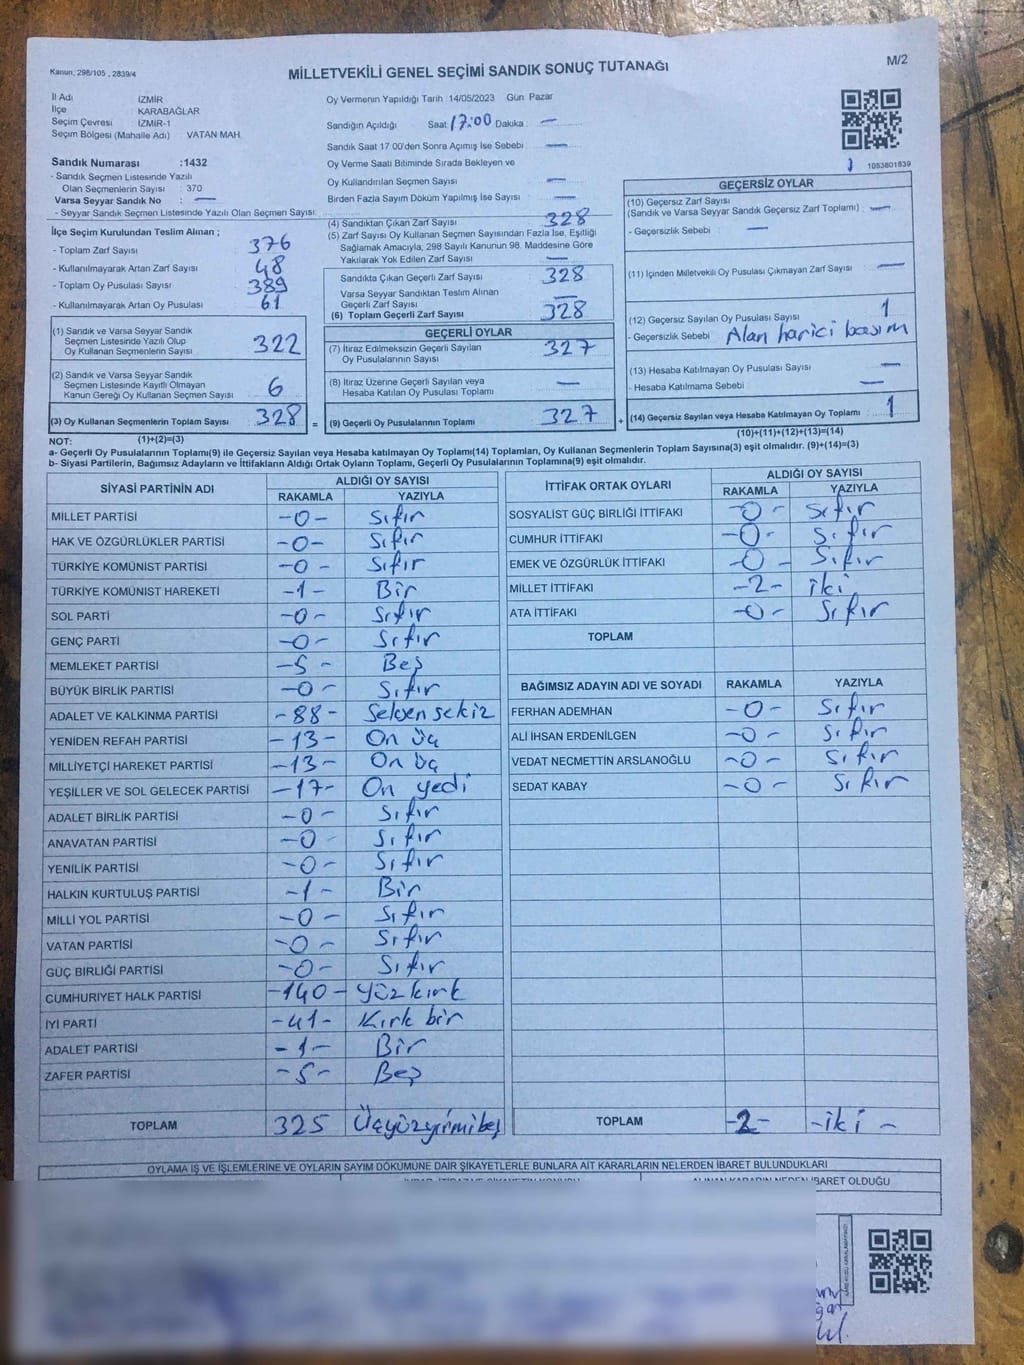 Kanun, 298/105 , 2839/4
MİLLETVEKİLİ GENEL SEÇİMİ SANDIK SONUÇ TUTANAĞI
M/2
İl Adı İZMİR
İlçe : KARABAĞLAR
Seçim Çevresi : İZMİR-1
Seçim Bölgesi (Mahalle Adı) VATAN MAH.
Sandık Numarası :1432
- Sandık Seçmen Listesinde Yazılı
Olan Seçmenlerin Sayısı : 370
Varsa Seyyar Sandık No : —
- Seyyar Sandık Seçmen Listesinde Yazılı Olan Seçmen Sayısı:
İlçe Seçim Kurulundan Teslim Alınan ;
- Toplam Zarf Sayısı 376
- Kullanılmayarak Artan Zarf Sayısı : 48
- Toplam Oy Pusulası Sayısı : 389
- Kullanılmayarak Artan Oy Pusulası : 61
(1) Sandık ve Varsa Seyyar Sandık
Seçmen Listesinde Yazılı Olup
Oy Kullanan Seçmenlerin Sayısı 322
(2) Sandık ve Varsa Seyyar Sandık
Seçmen Listesinde Kayıtlı Olmayan
Kanun Gereği Oy Kullanan Seçmen Sayısı 6
(3) Oy Kullanan Seçmenlerin Toplam Sayısı : 328
Oy Vermenin Yapıldığı Tarih 14/05/2023 Gün Pazar
Sandığın Açıldığı Saat 17:00 Dakika : —
Sandık Saat 17 00'den Sonra Açımış İse Sebebi : —
Oy Verme Saati Bitiminde Sırada Bekleyen ve
Oy Kullandırılan Seçmen Sayısı : —
Birden Fazla Sayım Döküm Yapılmış İse Sayısı : —
(4) Sandıktan Çıkan Zarf Sayısı : 328
(5) Zarf Sayısı Oy Kullanan Seçmen Sayısından Fazla İse, Eşitliği
Sağlamak Amacıyla, 298 Sayılı Kanunun 98. Maddesine Göre
Yakılarak Yok Edilen Zarf Sayısı : —
Sandıkta Çıkan Geçerli Zarf Sayısı : 328
Varsa Seyyar Sandıktan Teslim Alınan
Geçerli Zarf Sayısı : —
(6) Toplam Geçerli Zarf Sayısı : 328
GEÇERLİ OYLAR
(7) İtiraz Edilmeksizin Geçerli Sayılan
Oy Pusulalarının Sayısı : 327
(8) İtiraz Üzerine Geçerli Sayılan veya
Hesaba Katılan Oy Pusulası Toplamı : —
= (9) Geçerli Oy Pusulalarının Toplamı : 327 +
1083801839
GEÇERSİZ OYLAR
(10) Geçersiz Zarf Sayısı
(Sandık ve Varsa Seyyar Sandık Geçersiz Zarf Toplamı) : —
- Geçersizlik Sebebi : —
(11) İçinden Milletvekili Oy Pusulası Çıkmayan Zarf Sayısı : —
(12) Geçersiz Sayılan Oy Pusulası Sayısı : 1
- Geçersizlik Sebebi : Alan harici basım
(13) Hesaba Katılmayan Oy Pusulası Sayısı : —
- Hesaba Katılmama Sebebi : —
(14) Geçersiz Sayılan veya Hesaba Katılmayan Oy Toplamı : 1
NOT: (1)+(2)=(3)
(10)+(11)+(12)+(13)=(14)
a- Geçerli Oy Pusulalarının Toplamı(9) ile Geçersiz Sayılan veya Hesaba katılmayan Oy Toplamı(14) Toplamları, Oy Kullanan Seçmenlerin Toplam Sayısına(3) eşit olmalıdır. (9)+(14)=(3)
b- Siyasi Partilerin, Bağımsız Adayların ve İttifakların Aldığı Ortak Oyların Toplamı, Geçerli Oy Pusulalarının Toplamına(9) eşit olmalıdır.
SİYASİ PARTİNİN ADI ALDIĞI OY SAYISI
RAKAMLA YAZIYLA
MİLLET PARTİSİ -0- Sıfır
HAK VE ÖZGÜRLÜKLER PARTİSİ -0- Sıfır
TÜRKİYE KOMÜNİST PARTİSİ -0- Sıfır
TÜRKİYE KOMÜNİST HAREKETİ -1- Bir
SOL PARTİ -0- Sıfır
GENÇ PARTİ -0- Sıfır
MEMLEKET PARTİSİ -5- Beş
BÜYÜK BİRLİK PARTİSİ -0- Sıfır
ADALET VE KALKINMA PARTİSİ -88- Seksen sekiz
YENİDEN REFAH PARTİSİ -13- On üç
MİLLİYETÇİ HAREKET PARTİSİ -13- On üç
YEŞİLLER VE SOL GELECEK PARTİSİ -17- On yedi
ADALET BİRLİK PARTİSİ -0- Sıfır
ANAVATAN PARTİSİ -0- Sıfır
YENİLİK PARTİSİ -0- Sıfır
HALKIN KURTULUŞ PARTİSİ -1- Bir
MİLLİ YOL PARTİSİ -0- Sıfır
VATAN PARTİSİ -0- Sıfır
GÜÇ BİRLİĞİ PARTİSİ -0- Sıfır
CUMHURİYET HALK PARTİSİ -140- Yüzkırk
İYİ PARTİ -41- Kırk bir
ADALET PARTİSİ -1- Bir
ZAFER PARTİSİ -5- Beş
TOPLAM 325 Üçyüzyirmibeş
İTTİFAK ORTAK OYLARI ALDIĞI OY SAYISI
RAKAMLA YAZIYLA
SOSYALİST GÜÇ BİRLİĞİ İTTİFAKI -0- Sıfır
CUMHUR İTTİFAKI -0- Sıfır
EMEK VE ÖZGÜRLÜK İTTİFAKI -0- Sıfır
MİLLET İTTİFAKI -2- iki
ATA İTTİFAKI -0- Sıfır
TOPLAM
BAĞIMSIZ ADAYIN ADI VE SOYADI RAKAMLA YAZIYLA
FERHAN ADEMHAN -0- Sıfır
ALİ İHSAN ERDENİLGEN -0- Sıfır
VEDAT NECMETTİN ARSLANOĞLU -0- Sıfır
SEDAT KABAY -0- Sıfır
TOPLAM -2- -iki-
OYLAMA İŞ VE İŞLEMLERİNE VE OYLARIN SAYIM DÖKÜMÜNE DAİR ŞİKAYETLERLE BUNLARA AİT KARARLARIN NELERDEN İBARET BULUNDUKLARI
ALINAN KARARIN NEDEN İBARET OLDUĞU